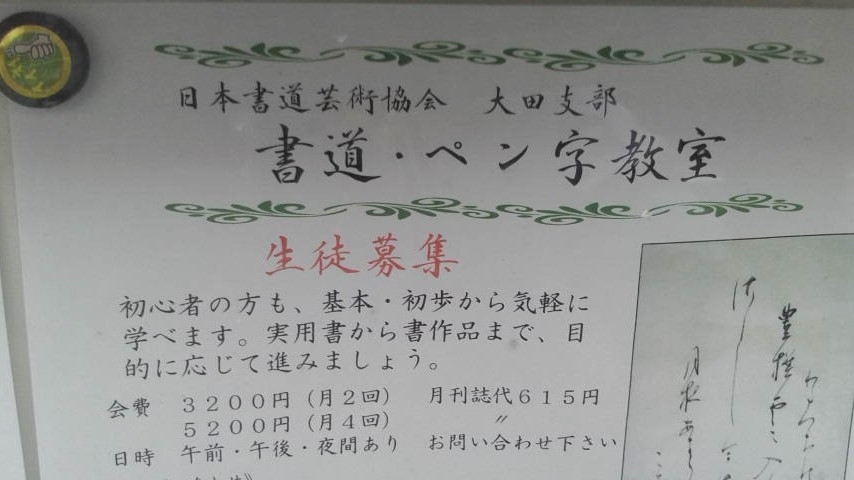 日本書道芸術協会　大田支部
書道・ペン字教室
生徒募集
初心者の方も、基本・初歩から気軽に
学べます。実用書から書作品まで、目
的に応じて進みましょう。
会費　３２００円（月２回）　月刊誌代６１５円
５２００円（月４回）　〃
日時　午前・午後・夜間あり　お問い合わせ下さい